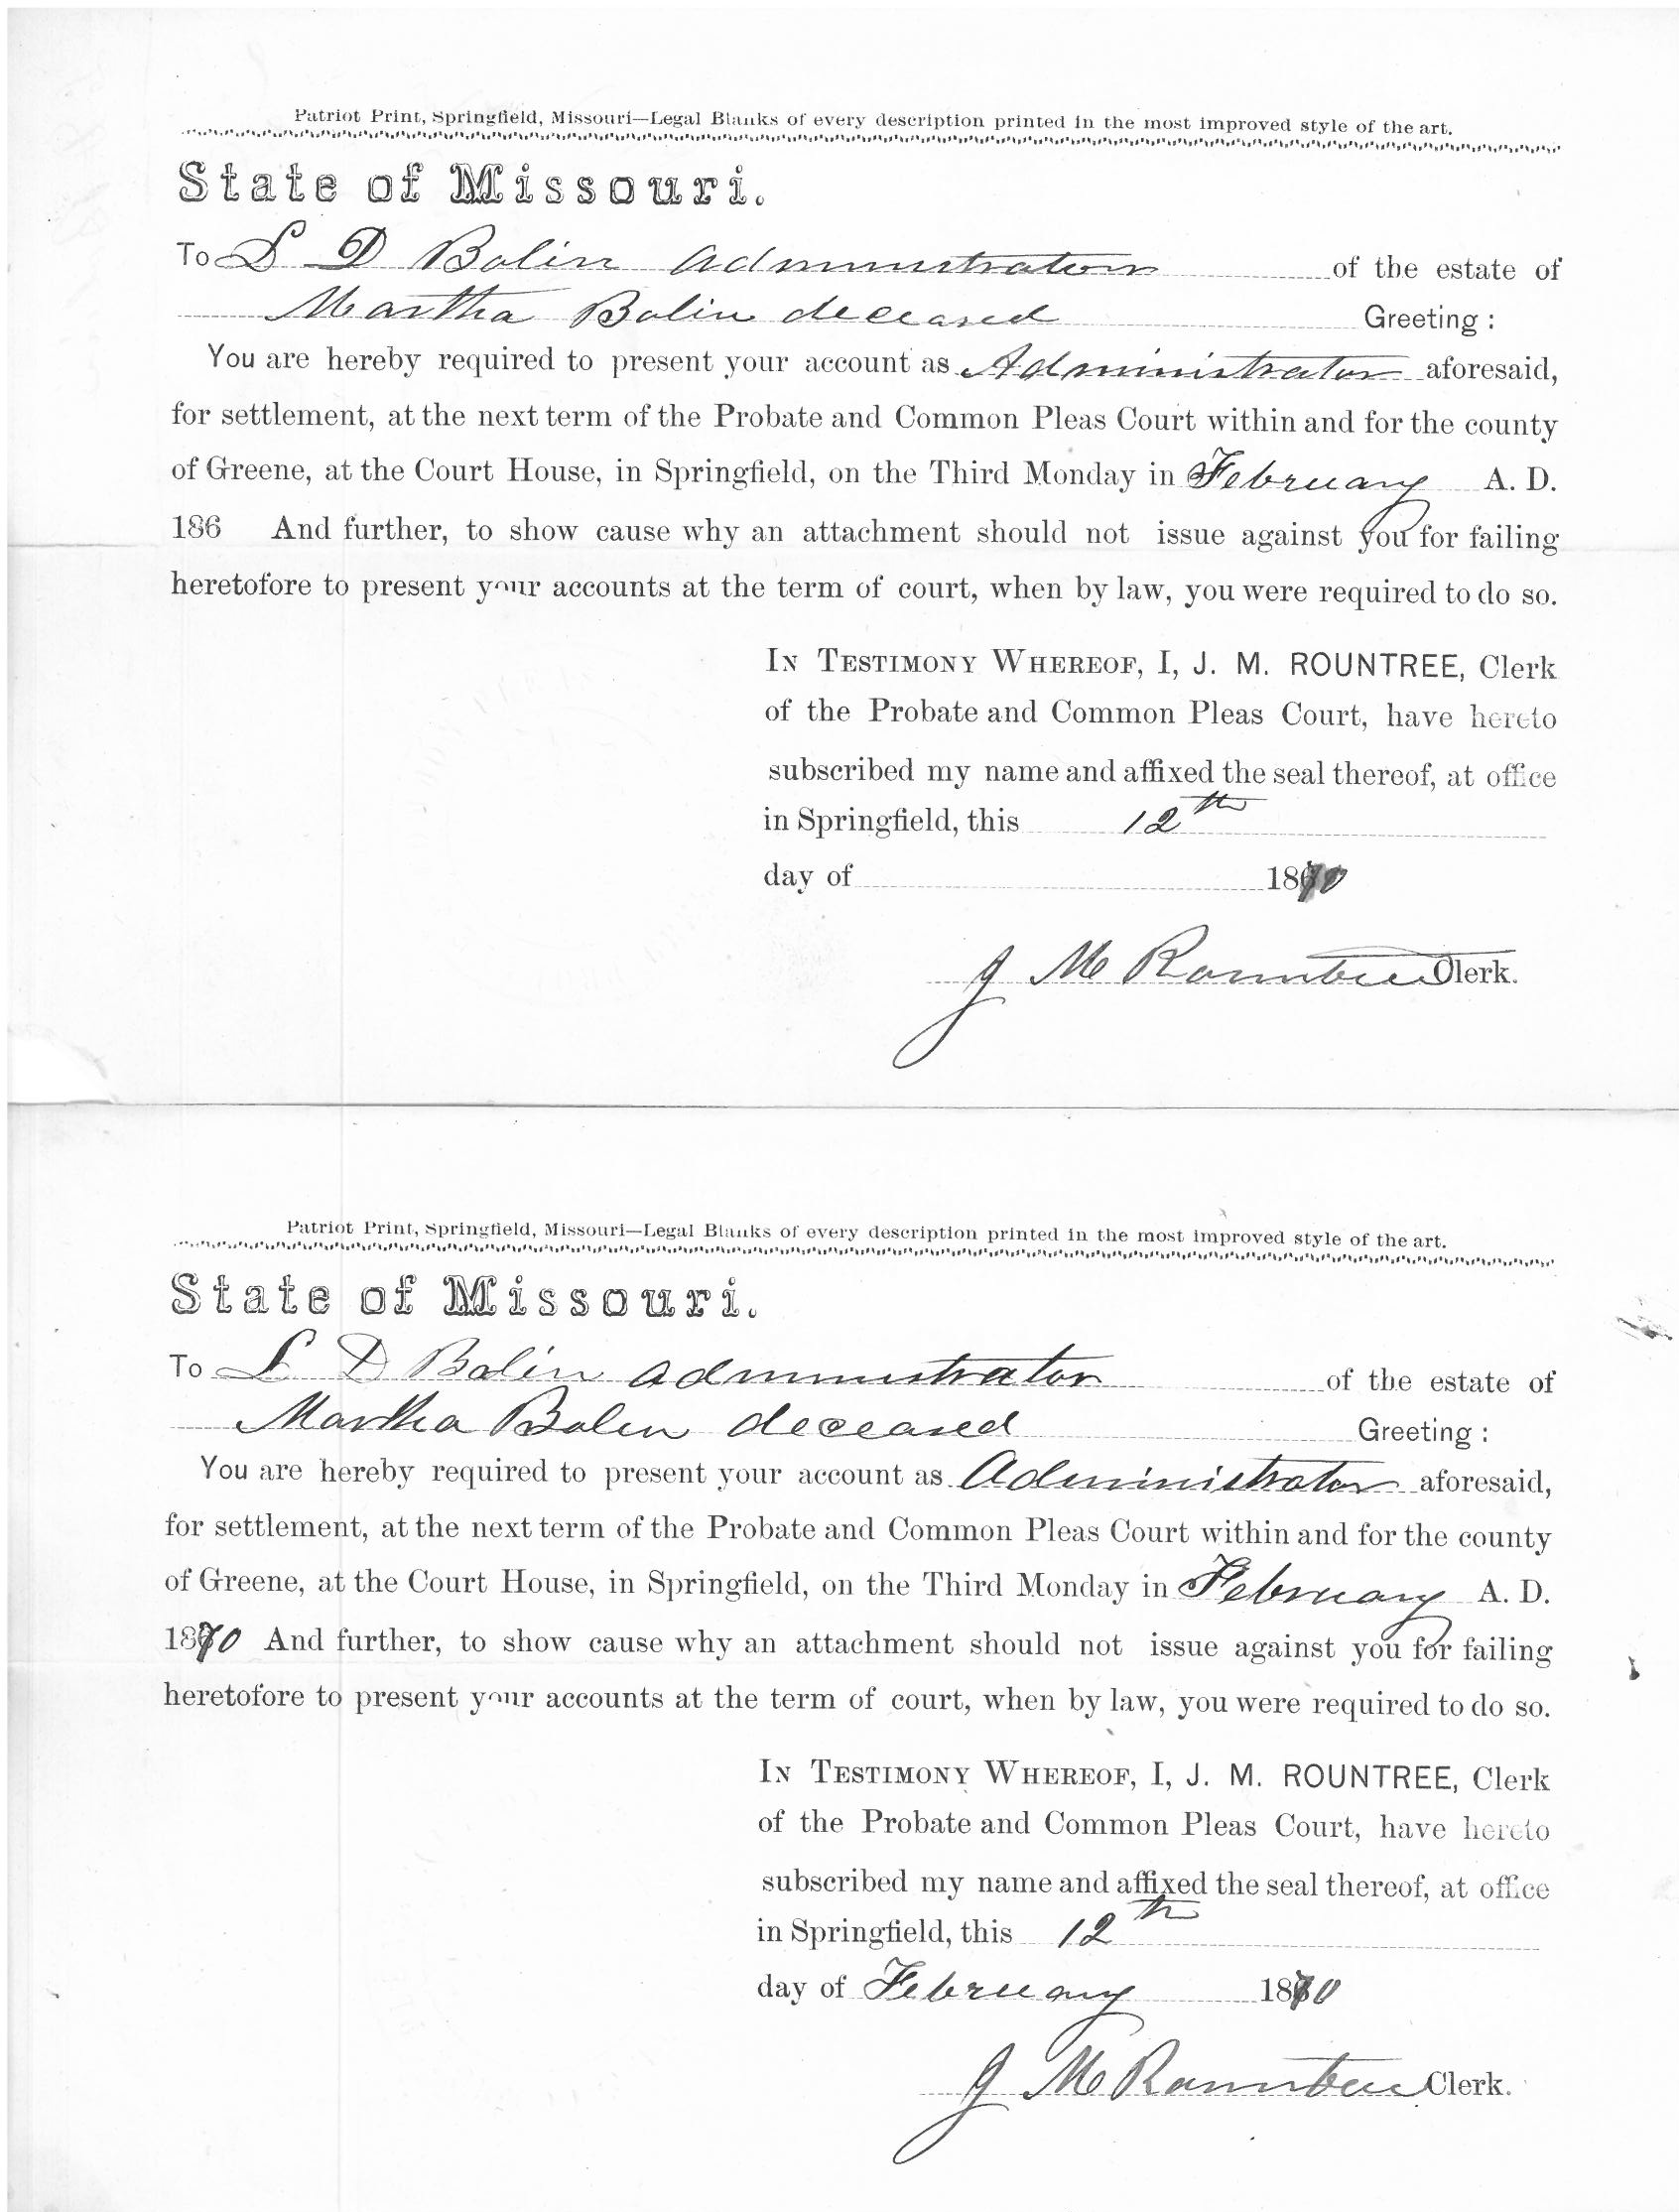 Patriot Print, Springfield, Missouri—Legal Blanks of every description printed in the most improved style of the art.
State of Missouri.
To L D Bolin Administrator of the estate of
Martha Bolin deceased Greeting :
You are hereby required to present your account as Administrator aforesaid,
for settlement, at the next term of the Probate and Common Pleas Court within and for the county
of Greene, at the Court House, in Springfield, on the Third Monday in February A. D.
186 And further, to show cause why an attachment should not issue against you for failing
heretofore to present your accounts at the term of court, when by law, you were required to do so.
In Testimony Whereof, I, J. M. ROUNTREE, Clerk
of the Probate and Common Pleas Court, have hereto
subscribed my name and affixed the seal thereof, at office
in Springfield, this 12th
day of 1870
J M Rountree Clerk.
Patriot Print, Springfield, Missouri—Legal Blanks of every description printed in the most improved style of the art.
State of Missouri.
To L D Bolin Administrator of the estate of
Martha Bolin deceased Greeting :
You are hereby required to present your account as Administrator aforesaid,
for settlement, at the next term of the Probate and Common Pleas Court within and for the county
of Greene, at the Court House, in Springfield, on the Third Monday in February A. D.
1870 And further, to show cause why an attachment should not issue against you for failing
heretofore to present your accounts at the term of court, when by law, you were required to do so.
In Testimony Whereof, I, J. M. ROUNTREE, Clerk
of the Probate and Common Pleas Court, have hereto
subscribed my name and affixed the seal thereof, at office
in Springfield, this 12th
day of February 1870
J M Rountree Clerk.